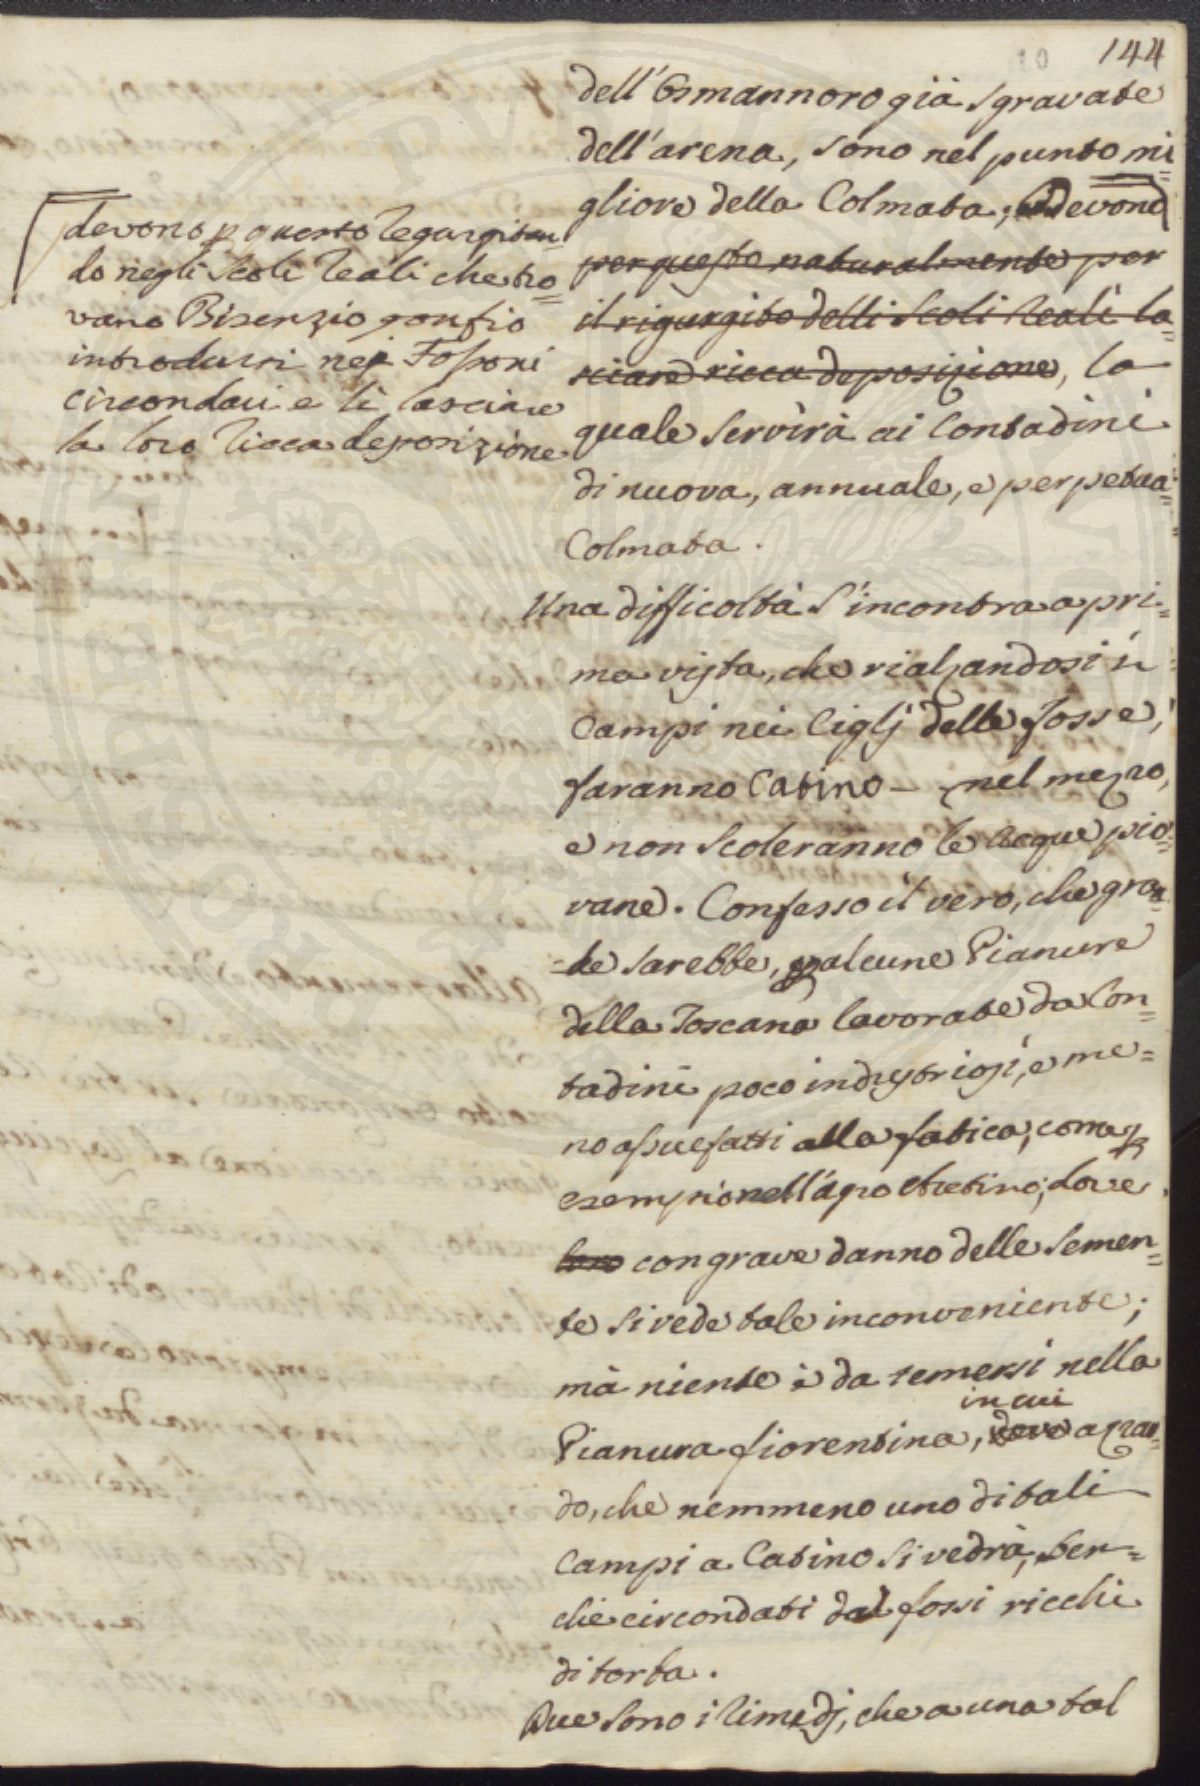 10 144
dell'Osmannoro già sgravate
dell'arena, sono nel punto mi=
gliore della Colmata; devono
per questo naturalmente per
il rigurgito delli Scoli Reali la=
sciare ricca deposizione, la
quale servirà ai Contadini
di nuova, annuale, e perpetua
Colmata.
devono p questo regurgitan=
do negli Scoli Reali che tro=
vano Bisenzio gonfio
introdursi nei Fossoni
circondari e lì lasciare
la loro ricca deposizione
Una difficoltà s'incontra a pri=
ma vista, che rialzandosi i
Campi nei Ciglj delle fosse,
faranno Catino nel mezzo,
e non scoleranno le acque pio=
vane. Confesso il vero, che gran=
=de sarebbe, p alcune Pianure
della Toscana lavorate da Con=
tadini poco industriosi, e me=
no assuefatti alla fatica, come p
esempio nell'agro Aretino, dove
loro con grave danno delle semen=
te si vede tale inconveniente;
mà niente è da temersi nella
in cui
Pianura fiorentina, dove azzar=
do, che nemmeno uno di tali
Campi a Catino si vedrà, ben=
chè circondati dal fossi ricchi
di torba.
Due sono i rimedj, che a una tal